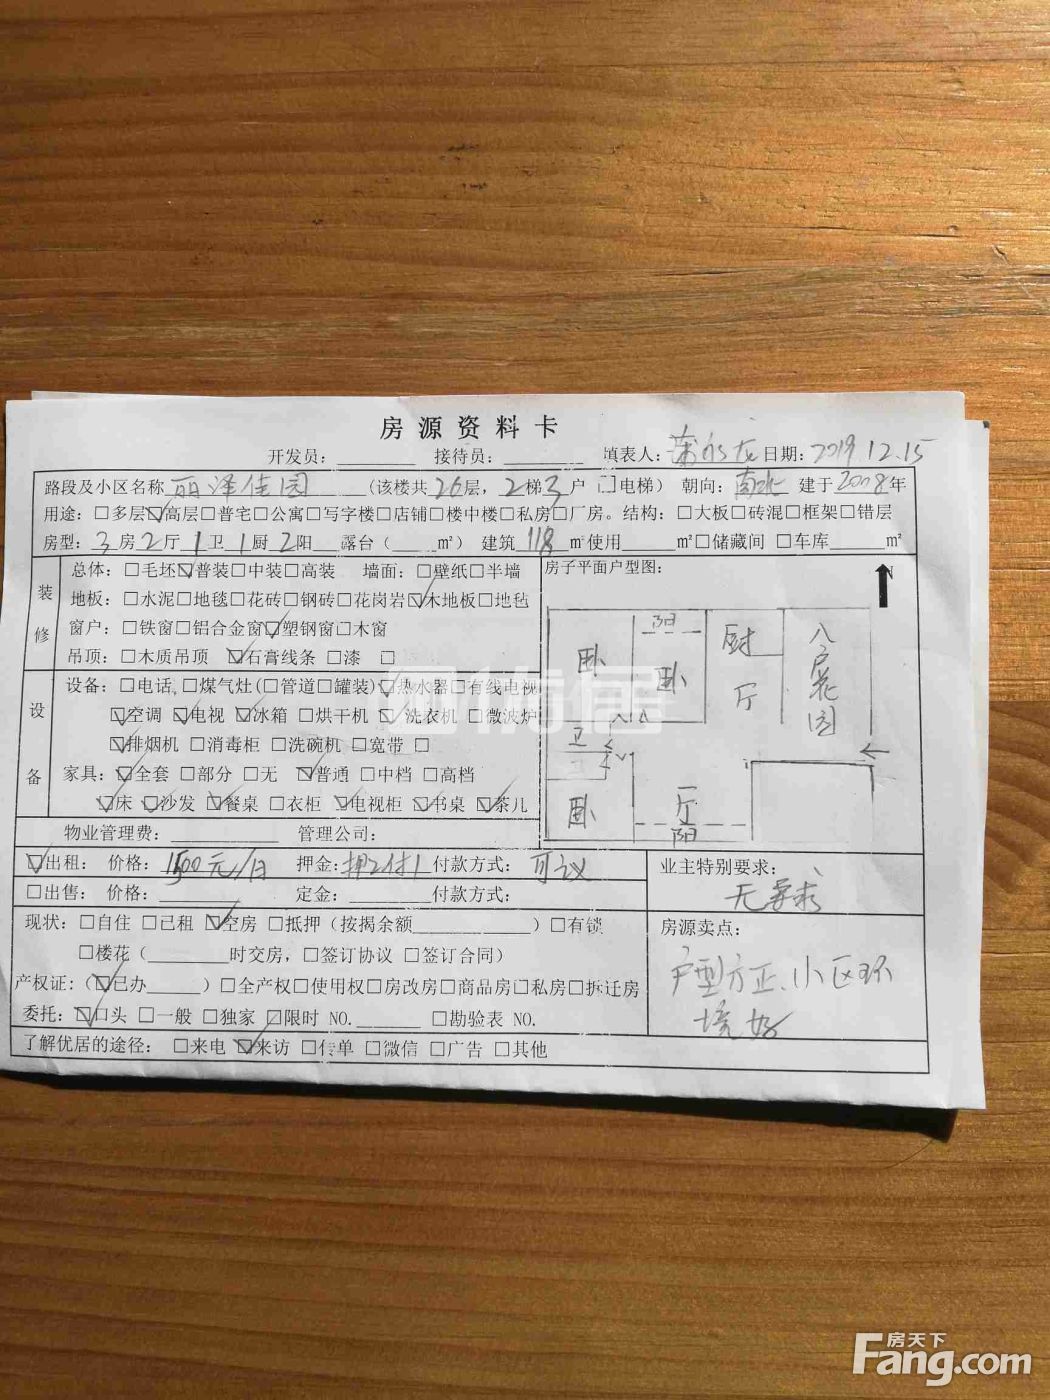 房源资料卡
开发员：______ 接待员：______ 填表人： 日期：2019.12.15
路段及小区名称 丽泽佳园 (该楼共26层，2梯3户 □电梯) 朝向：南北 建于2008年
用途：□多层☑高层□普宅□公寓□写字楼□店铺□楼中楼□私房□厂房。结构：□大板□砖混□框架□错层
房型：3房2厅1卫1厨2阳__露台（____㎡） 建筑118㎡使用______㎡□储藏间 □车库______㎡
装修
总体：□毛坯☑普装□中装□高装 墙面：□壁纸□半墙
地板：□水泥□地毯□花砖□钢砖□花岗岩☑木地板□地毡
窗户：□铁窗□铝合金窗☑塑钢窗□木窗
吊顶：□木质吊顶 ☑石膏线条□漆 □
设备
设备：□电话，□煤气灶(□管道□罐装)☑热水器□有线电视
☑空调 ☑电视 ☑冰箱 □烘干机 ☑洗衣机 □微波炉
☑排烟机 □消毒柜 □洗碗机 □宽带 □
家具：☑全套 □部分 □无 ☑普通 □中档 □高档
☑床 ☑沙发 ☑餐桌 □衣柜 ☑电视柜 ☑书桌 ☑茶几
房子平面户型图：
N
阳
卧
卧
厨
厅
入户花园
卫
卧
厅
阳
物业管理费：______ 管理公司：
☑出租： 价格：1500元/月 押金：押2付1 付款方式：可议
□出售： 价格：______ 定金：______付款方式：
业主特别要求：
无要求
现状：□自住 □已租 ☑空房 □抵押（按揭余额__________）□有锁
□楼花（______时交房，□签订协议 □签订合同）
产权证：（☑已办____）□全产权□使用权□房改房□商品房□私房□拆迁房
委托：☑口头 □一般 □独家 ☑限时 NO.______ □勘验表 NO.
房源卖点：
户型方正、小区环
境好
了解优居的途径：□来电 ☑来访 □传单 □微信 □广告 □其他
房天下
Fang.com